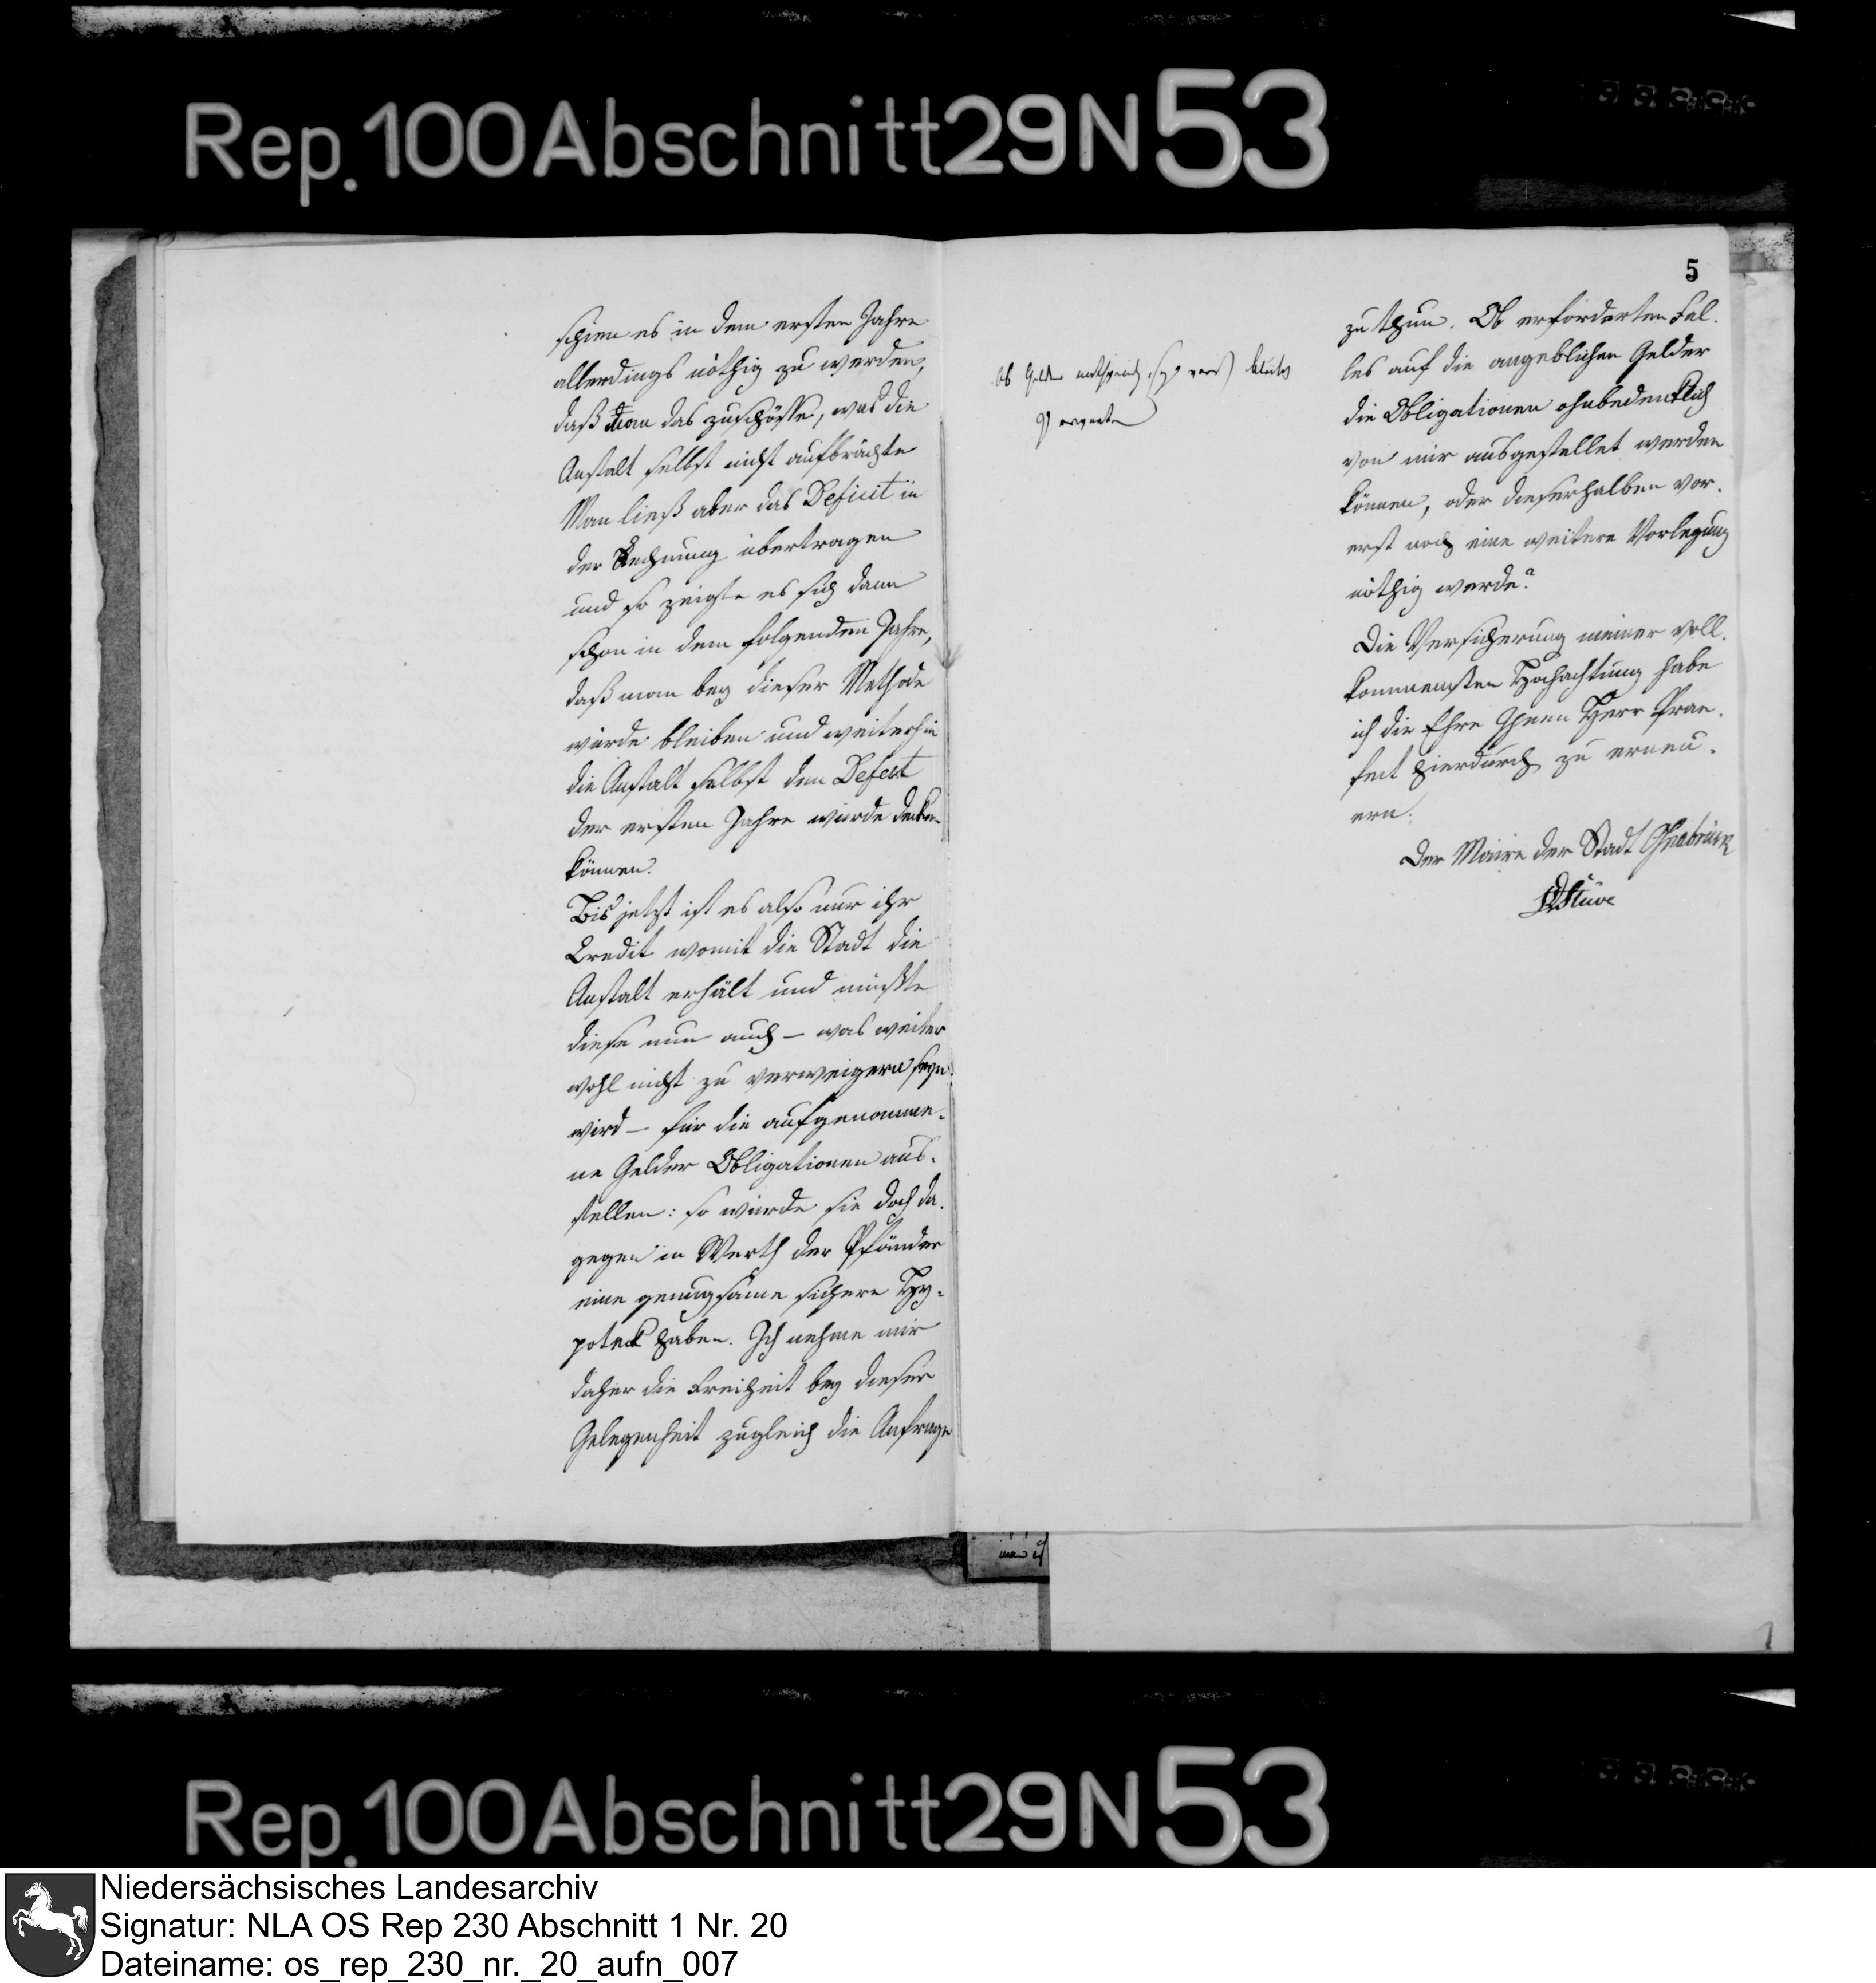 Rep. 100 Abschnitt 29 N 53
schien es in dem ersten Jahre
allerdings nöthig zu werden,
daß man das zuschösse, was die
Anstalt selbst nicht aufbrächte
Man ließ aber das Deficit in
der Rechnung übertragen
und so zeigte es sich dann
schon in dem folgenden Jahre,
daß man bey dieser Methode
würde bleiben und weiterhin
die Anstalt selbst den Defect
der ersten Jahre würde decken
können.
Bis jetzt ist es also nur ihr
Credit womit die Stadt die
Anstalt erhält und müßte
diese nun auch – was weiter
wohl nicht zu verweigern seyn
wird – für die aufgenomme-
ne Gelder Obligationen aus-
stellen: so würde sie doch da-
gegen in Werth der Pfänder
eine genugsame sichere Hy-
poteck haben. Ich nehme mir
daher die Freiheit bey dieser
Gelegenheit zugleich die Anfrage
5
zu thun. Ob erforderten Fal-
les auf die angeblichen Gelder
die Obligationen ohnbedenklich
von mir ausgestellet werden
können, oder dieserhalben vor-
erst noch eine weitere Vorlegung
nöthig werde?
Die Versicherung meiner voll-
kommensten Hochachtung habe
ich die Ehre Ihnen Herr Prae-
fect hierdurch zu erneu-
ern.
Der Maire der Stadt Osnabrück
Stüve
Ob Gelder
Rep. 100 Abschnitt 29 N 53
Niedersächsisches Landesarchiv
Signatur: NLA OS Rep 230 Abschnitt 1 Nr. 20
Dateiname: os_rep_230_nr._20_aufn_007